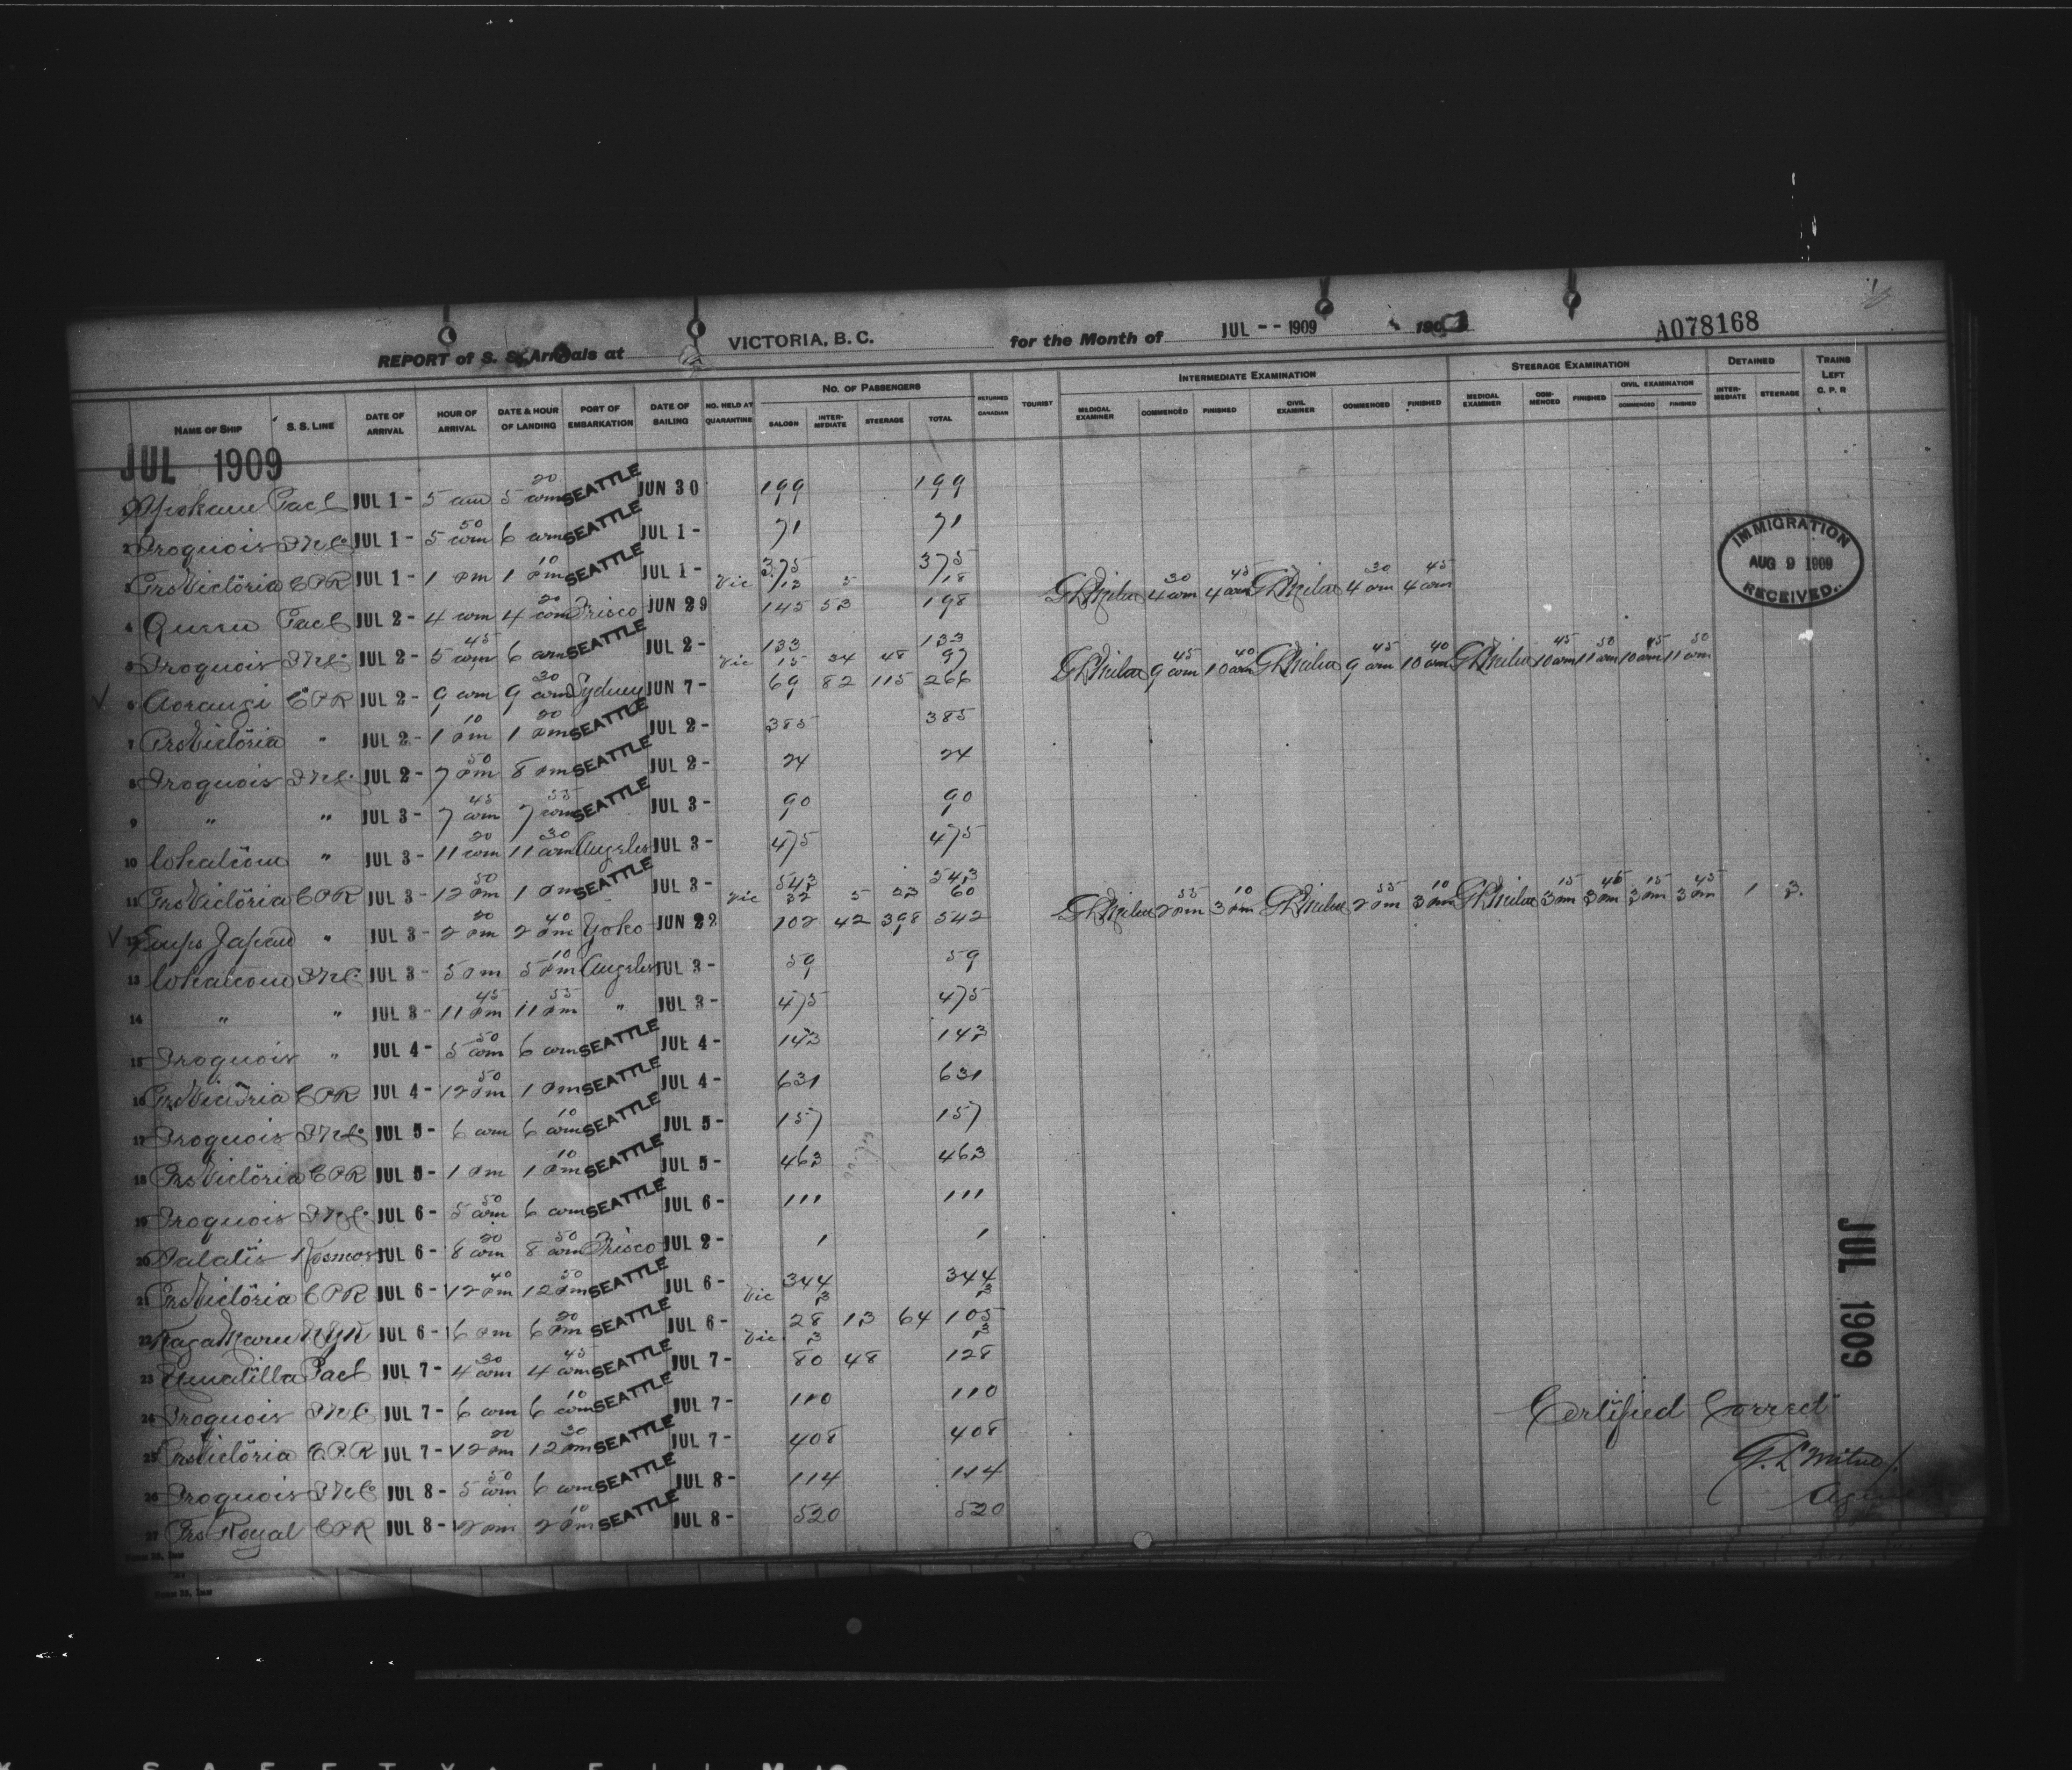 REPORT of S. S. Arrivals at VICTORIA, B. C. for the Month of JUL -- 1909 190 A078168
NAME OF SHIP S. S. LINE DATE OF ARRIVAL HOUR OF ARRIVAL DATE & HOUR OF LANDING PORT OF EMBARKATION DATE OF SAILING NO. HELD AT QUARANTINE NO. OF PASSENGERS SALOON INTER-MEDIATE STEERAGE TOTAL RETURNED CANADIAN TOURIST INTERMEDIATE EXAMINATION MEDICAL EXAMINER COMMENCED FINISHED CIVIL EXAMINER COMMENCED FINISHED STEERAGE EXAMINATION MEDICAL EXAMINER COM-MENCED FINISHED CIVIL EXAMINATION COMMENCED FINISHED DETAINED INTER-MEDIATE STEERAGE TRAINS LEFT C. P. R
JUL 1909
1 Spokane Pacl JUL 1- 5 am 5 20 am SEATTLE JUN 30 199 199
2 Iroquois JUL 1- 5 50 am 6 am SEATTLE JUL 1- 71 71
3 PrsVictoria CPR JUL 1- 1 pm 1 10 pm SEATTLE JUL 1- 375 375
Vic 13 5 18
4 Queen Pacl JUL 2- 4 am 4 20 am Frisco JUN 29 145 53 198 4 30 am 4 45 am 4 30 am 4 45 am
5 Iroquois JUL 2- 5 45 am 6 am SEATTLE JUL 2- 133 133
Vic 15 34 48 97
6 Aorangi CPR JUL 2- 9 am 9 30 am Sydney JUN 7- 69 82 115 266 9 45 am 10 40 am 9 45 am 10 40 am 10 45 am 11 50 am 10 45 am 11 50 am
7 PrsVictoria " JUL 2- 1 10 pm 1 20 pm SEATTLE JUL 2- 385 385
8 Iroquois JUL 2- 7 50 pm 8 pm SEATTLE JUL 2- 24 24
9 " " JUL 3- 7 45 am 7 55 am SEATTLE JUL 3- 90 90
10 Whatcom " JUL 3- 11 20 am 11 30 am Angeles JUL 3- 475 475
11 PrsVictoria CPR JUL 3- 12 50 pm 1 pm SEATTLE JUL 3- 543 543
Vic 32 5 23 60
12 Emps Japan " JUL 3- 2 20 pm 2 40 pm Yoko JUN 22 102 42 398 542 2 55 pm 3 10 pm 2 55 pm 3 10 pm 3 15 pm 3 45 pm 3 15 pm 3 45 pm 1 3.
13 Whatcom JUL 3- 5 pm 5 10 pm Angeles JUL 3- 59 59
14 " " JUL 3- 11 45 pm 11 55 pm " JUL 3- 475 475
15 Iroquois " JUL 4- 5 50 am 6 am SEATTLE JUL 4- 143 143
16 PrsVictoria CPR JUL 4- 12 50 pm 1 pm SEATTLE JUL 4- 631 631
17 Iroquois JUL 5- 6 am 6 10 am SEATTLE JUL 5- 157 157
18 PrsVictoria CPR JUL 5- 1 pm 1 10 pm SEATTLE JUL 5- 463 463
19 Iroquois JUL 6- 5 50 am 6 am SEATTLE JUL 6- 111 111
20 Kosmos JUL 6- 8 20 am 8 50 am Frisco JUL 2- 1 1
21 PrsVictoria CPR JUL 6- 12 40 pm 12 50 pm SEATTLE JUL 6- 344 344
Vic 3 3
22 Kaga Maru NYK JUL 6- 6 pm 6 20 pm SEATTLE JUL 6- 28 13 64 105
Vic 3 3
23 Umatilla Pacl JUL 7- 4 30 am 4 45 am SEATTLE JUL 7- 80 48 128
24 Iroquois JUL 7- 6 am 6 10 am SEATTLE JUL 7- 110 110
25 PrsVictoria C.P.R JUL 7- 12 20 pm 12 30 pm SEATTLE JUL 7- 408 408
26 Iroquois JUL 8- 5 50 am 6 am SEATTLE JUL 8- 114 114
27 Prs Royal CPR JUL 8- 2 pm 2 10 pm SEATTLE JUL 8- 520 520
IMMIGRATION
AUG 9 1909
RECEIVED.
JUL 1909
Certified Correct
G. L. Milne
Agent
Form 33, Imm
Form 33, Imm
SAFETY FILM